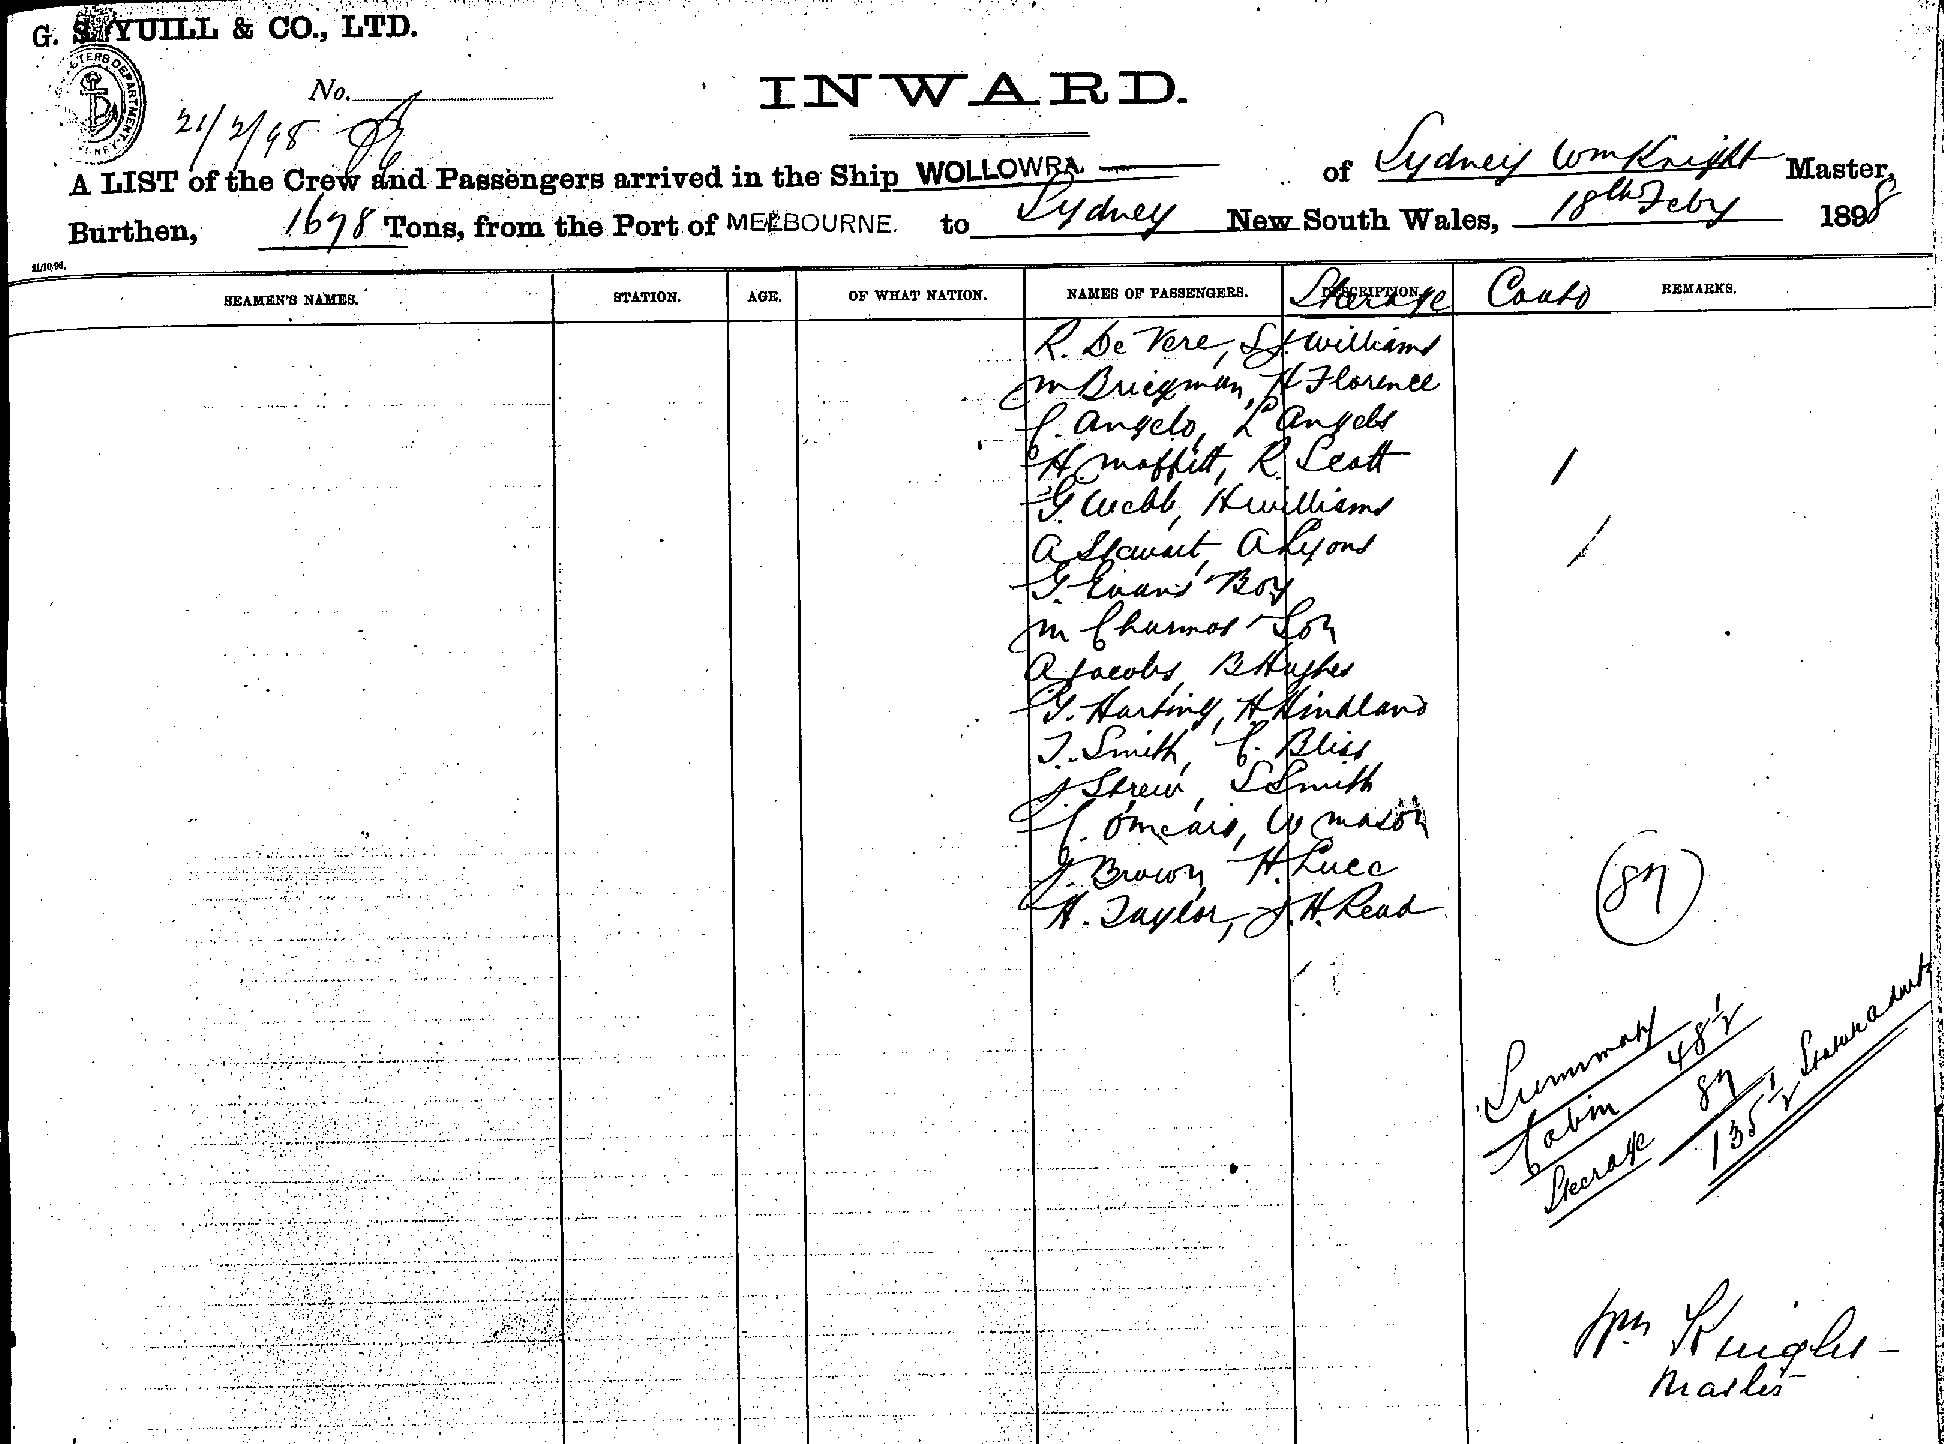 G. S. YUILL & CO., LTD.
No.
INWARD.
21/2/98
A LIST of the Crew and Passengers arrived in the Ship WOLLOWRA of Sydney Wm Knight Master,
Burthen, 1698 Tons, from the Port of MELBOURNE. to Sydney New South Wales, 18th Feby 1898
21/10/96.
SEAMEN'S NAMES. STATION. AGE. OF WHAT NATION. NAMES OF PASSENGERS. DESCRIPTION. Steerage Contd REMARKS.
R. De Vere, S J. Williams
M Bricgman, H Florence
C. Angelo, L Angels
H Moffitt, R. Scott
G. Webb, H Williams
A Stewart, A Lyons
G. Evans Boy
M Charmos Son
A Jacobs, B Hughes
G. Harting, H Hindland
T. Smith, C. Bliss
J Strew, S Smith
C. O'Meara, W Mason
J. Brown, H. Luce
H. Taylor, J. H. Read
87
Summary
Cabin 48 1/2
Steerage 87
135 1/2 Statute Adults
Wm Knight
Master